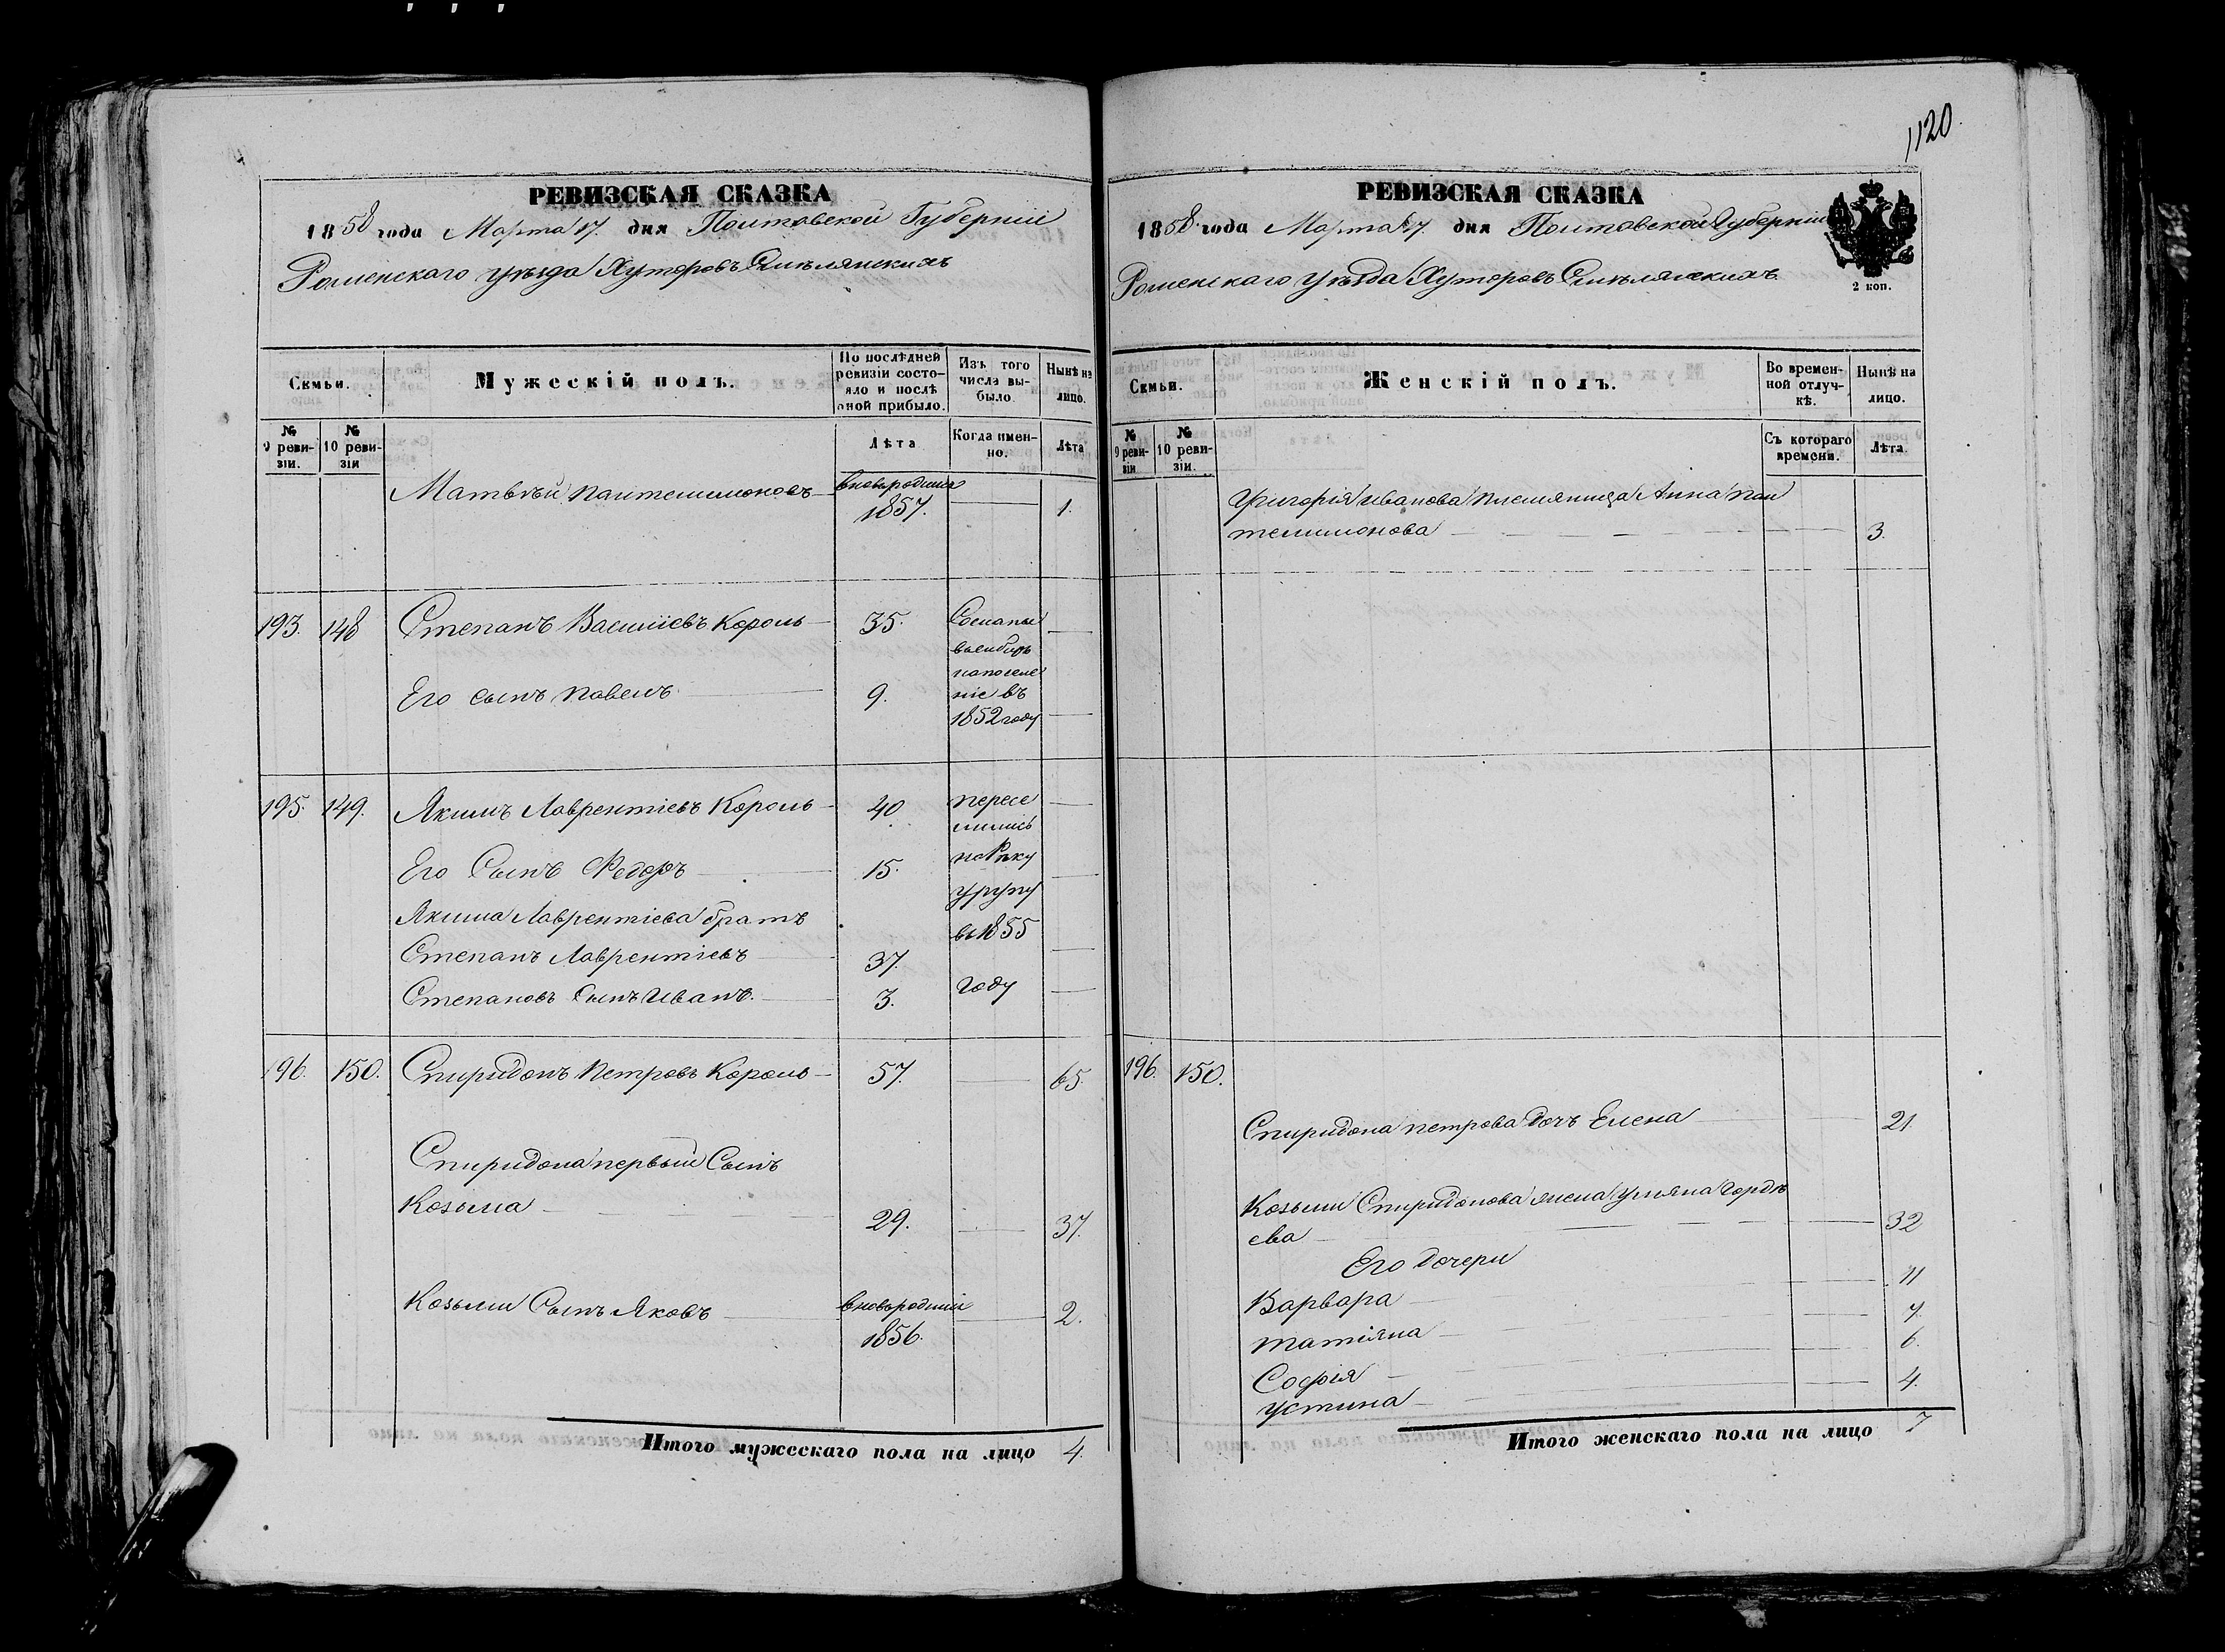 1120.
РЕВИЗСКАЯ СКАЗКА
1858 года Марта 17. дня Полтавской Губерніи
Роменскаго уѣзда Хуторовъ Смѣлянскихъ
Семьи.
Мужескій полъ.
По послѣдней ревизіи состояло и послѣ оной прибыло.
Изъ того числа выбыло.
Нынѣ на лицо.
№ 9 ревизіи.
№ 10 ревизіи
Лѣта
Когда именно.
Лѣта
Матвѣй Пантелимоновъ вновьродился 1857. 1.
193. 148 Степанъ Василіевъ Король 35. Сосланы
всибирь
Его сынъ Павелъ 9. напоселе
ніе въ
1852 году
195. 149. Якимъ Лаврентіевъ Король 40 пересе
лились
Его Сынъ Федоръ 15. на Рѣку
урупу
Якима Лаврентіева братъ
Степанъ Лаврентіевъ 37. въ 1855
Степановъ Сынъ Иванъ. 3. году
196. 150. Спиридонъ Петровъ Король 57. 65
Спиридона первый Сынъ
Козьма 29. 37.
Козьми Сынъ Яковъ вновьродился 1856. 2.
Итого мужескаго пола на лицо 4.
РЕВИЗСКАЯ СКАЗКА
1858 года Марта 17. дня Полтавской Губерніи
Роменскаго уѣзда Хуторовъ Смѣлянскихъ
2 коп.
Семьи.
Женскій полъ.
Во временной отлучкѣ.
Нынѣ на лицо.
№ 9 ревизіи
№ 10 ревизіи.
Съ котораго времени.
Лѣта.
Григорія Иванова племянница Анна Пан
телимонова 3.
196. 150.
Спиридона петрова дочь Елена 21
Козьми Спиридонова жена Ульяна Гордѣ
ева 32
Его дочери
Варвара 11
татіяна 7.
Софія 6.
устина 4.
Итого женскаго пола на лицо 7